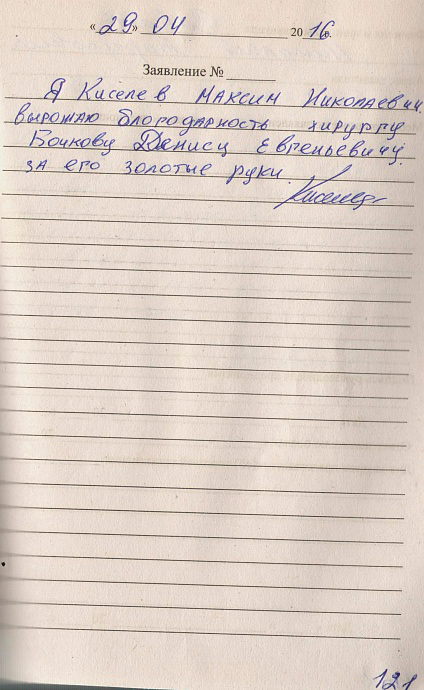 «29» 04 2016г.
Заявление №
Я Киселев Максим Николаевич
вырожаю блогодарность хирургу
Бочкову Денису Евгеньевичу.
за его золотые руки.
Киселев
121